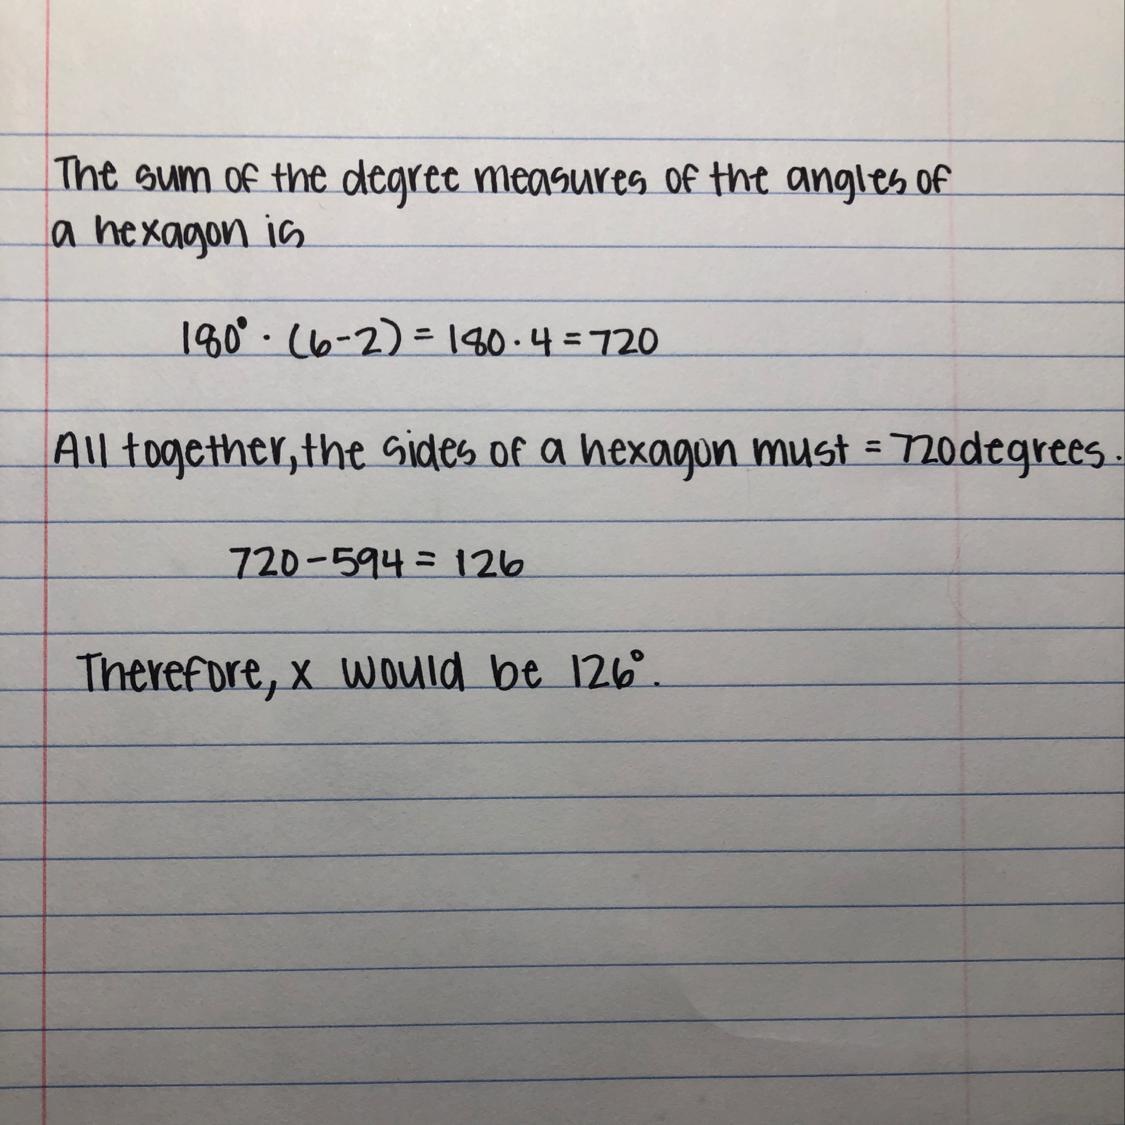 The sum of the degree measures of the angles of
a hexagon is
180° · (6-2) = 180 · 4 = 720
All together, the sides of a hexagon must = 720 degrees.
720 - 594 = 126
Therefore, x would be 126°.